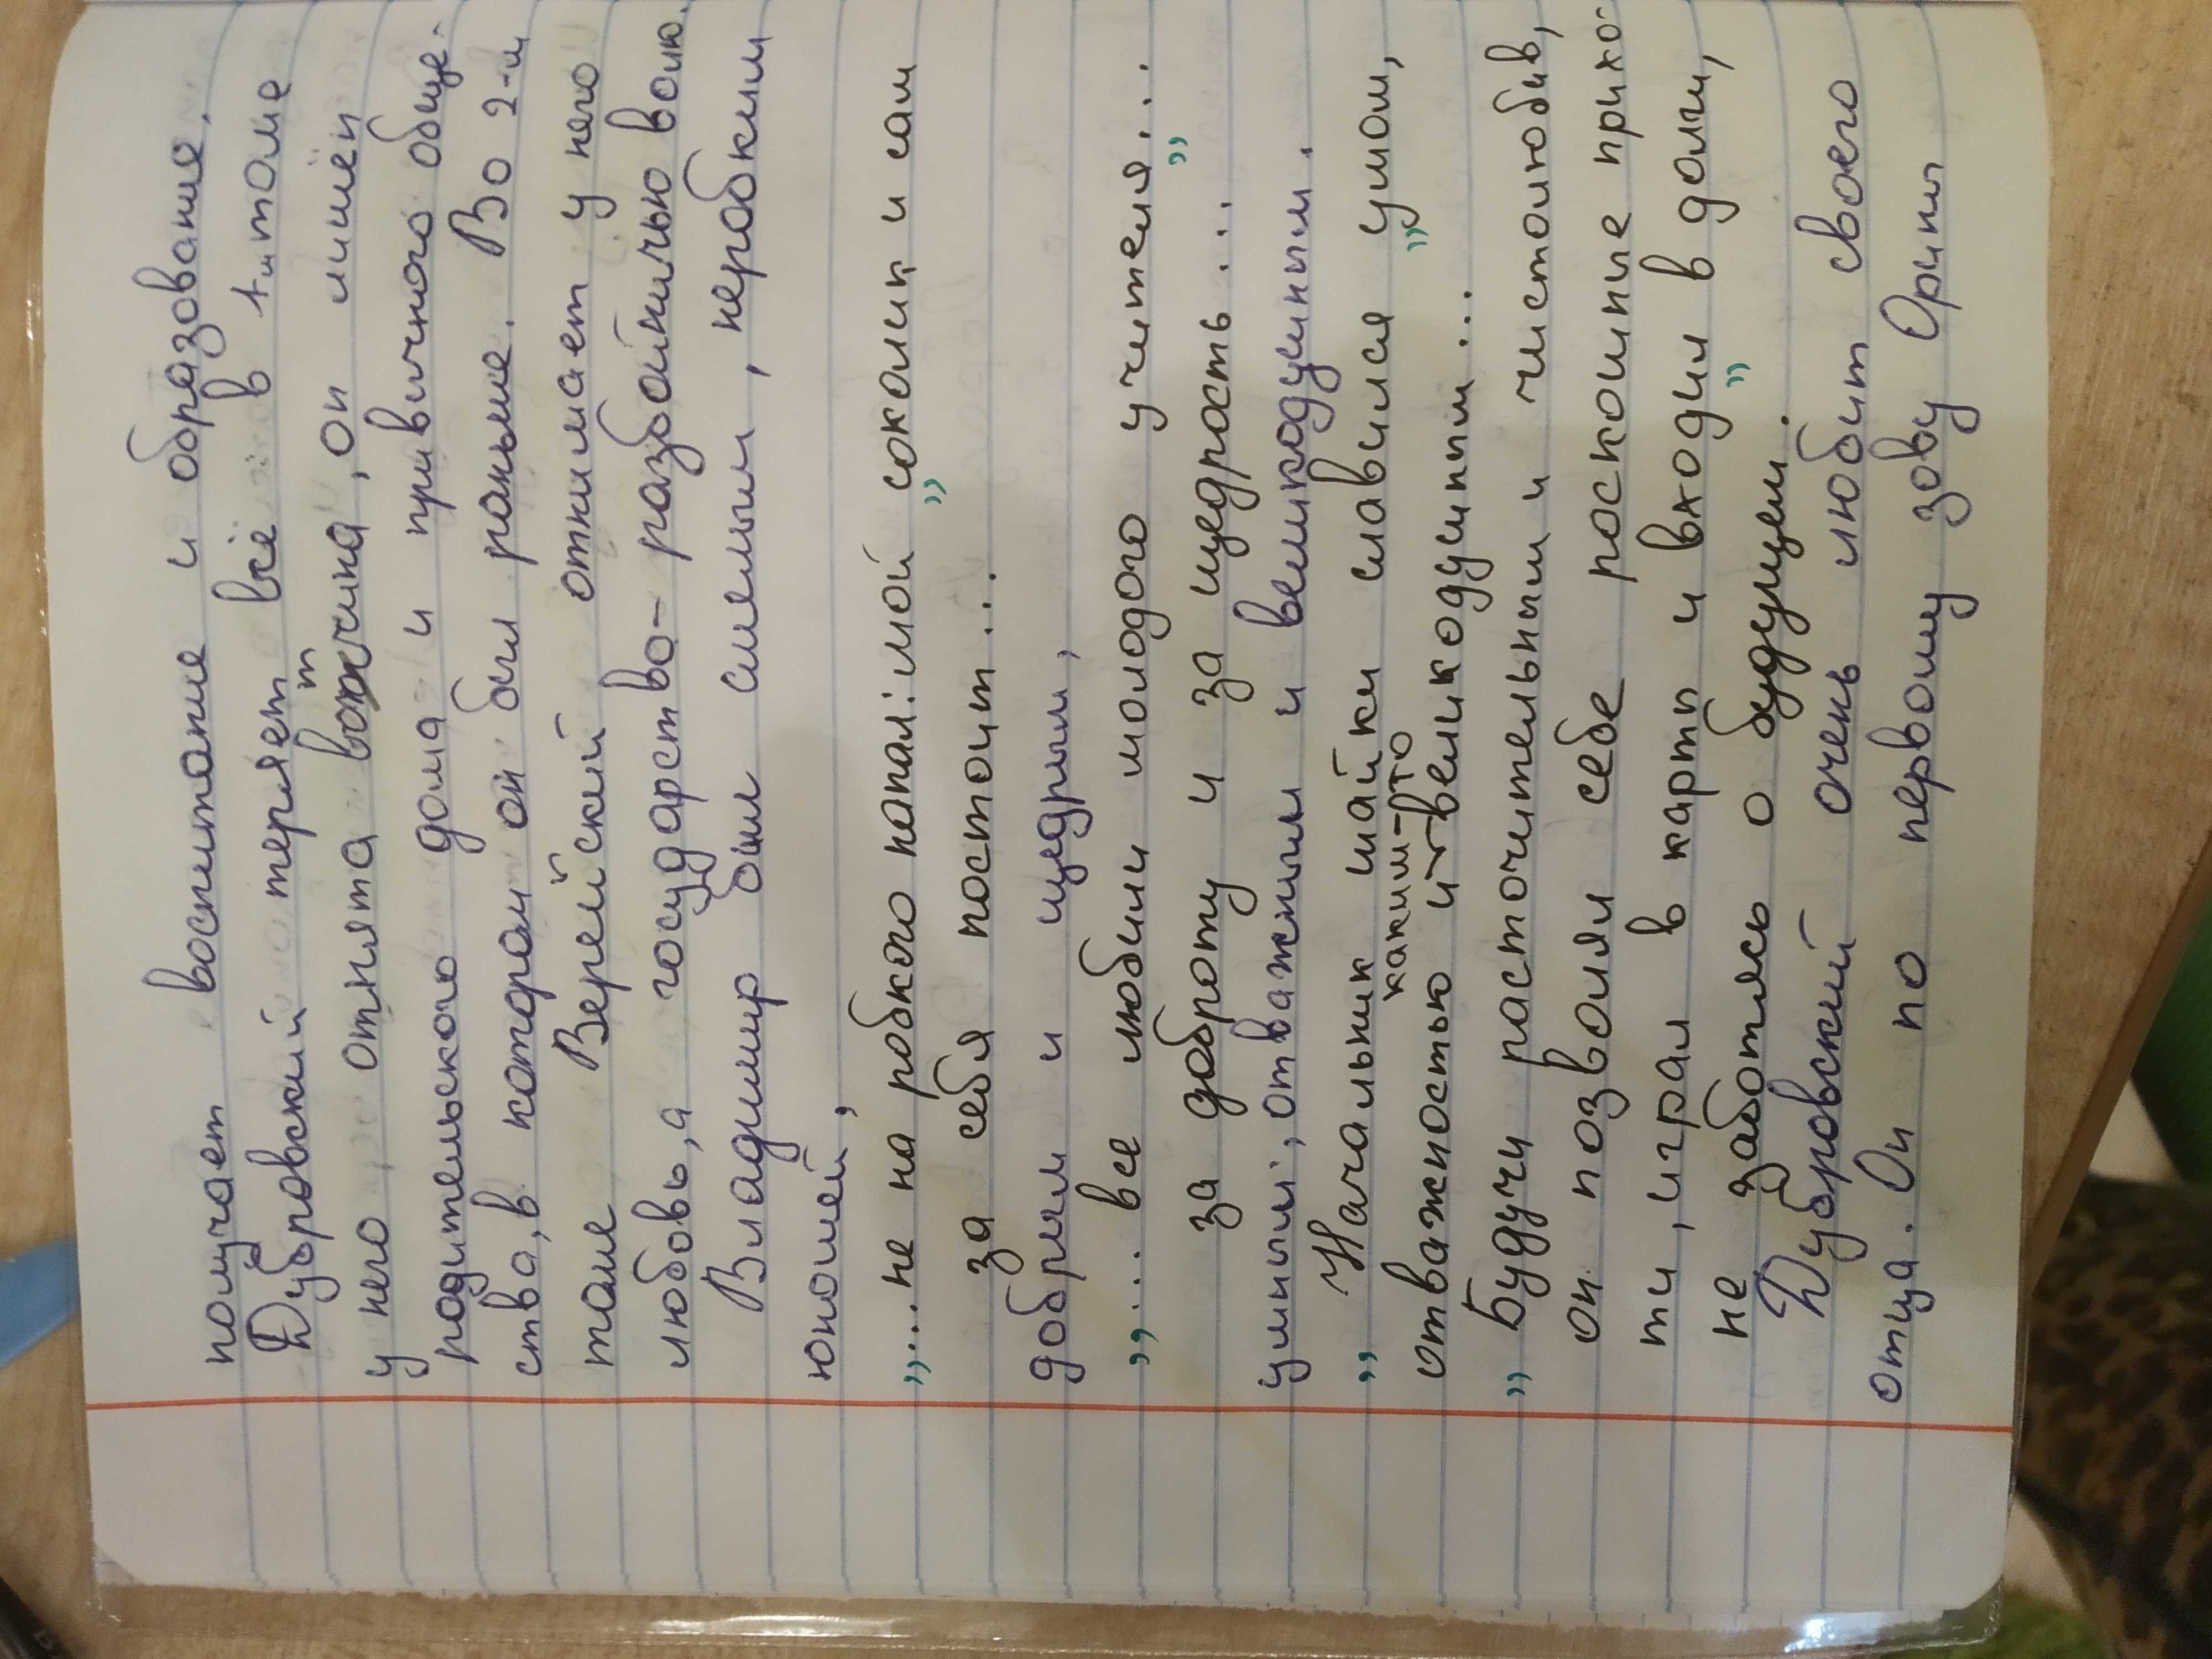 получает воспитание и образование.
Дубровский теряет всё в 1-м томе
у него отнята вотчина, он лишён
родительского дома и привычного обще-
ства, в котором он был раньше. Во 2-м
томе Верейский отнимает у него
любовь, а государство - разбойничью волю.
Владимир был смелым, неробким
юношей,
„... не на робкого напал: мой соколик и сам
за себя постоит..."
добрым и щедрым,
„... все любили молодого учителя...
за доброту и за щедрость..."
умным, отважным и великодушным.
„Начальник шайки славился умом,
отважностью и каким-то великодушным..."
„Будучи расточительным и честолюбив,
он позволял себе роскошные прихо-
ти, играл в карты и входил в долги,
не заботясь о будущем."
Дубровский очень любит своего
отца. Он по первому зову Орины